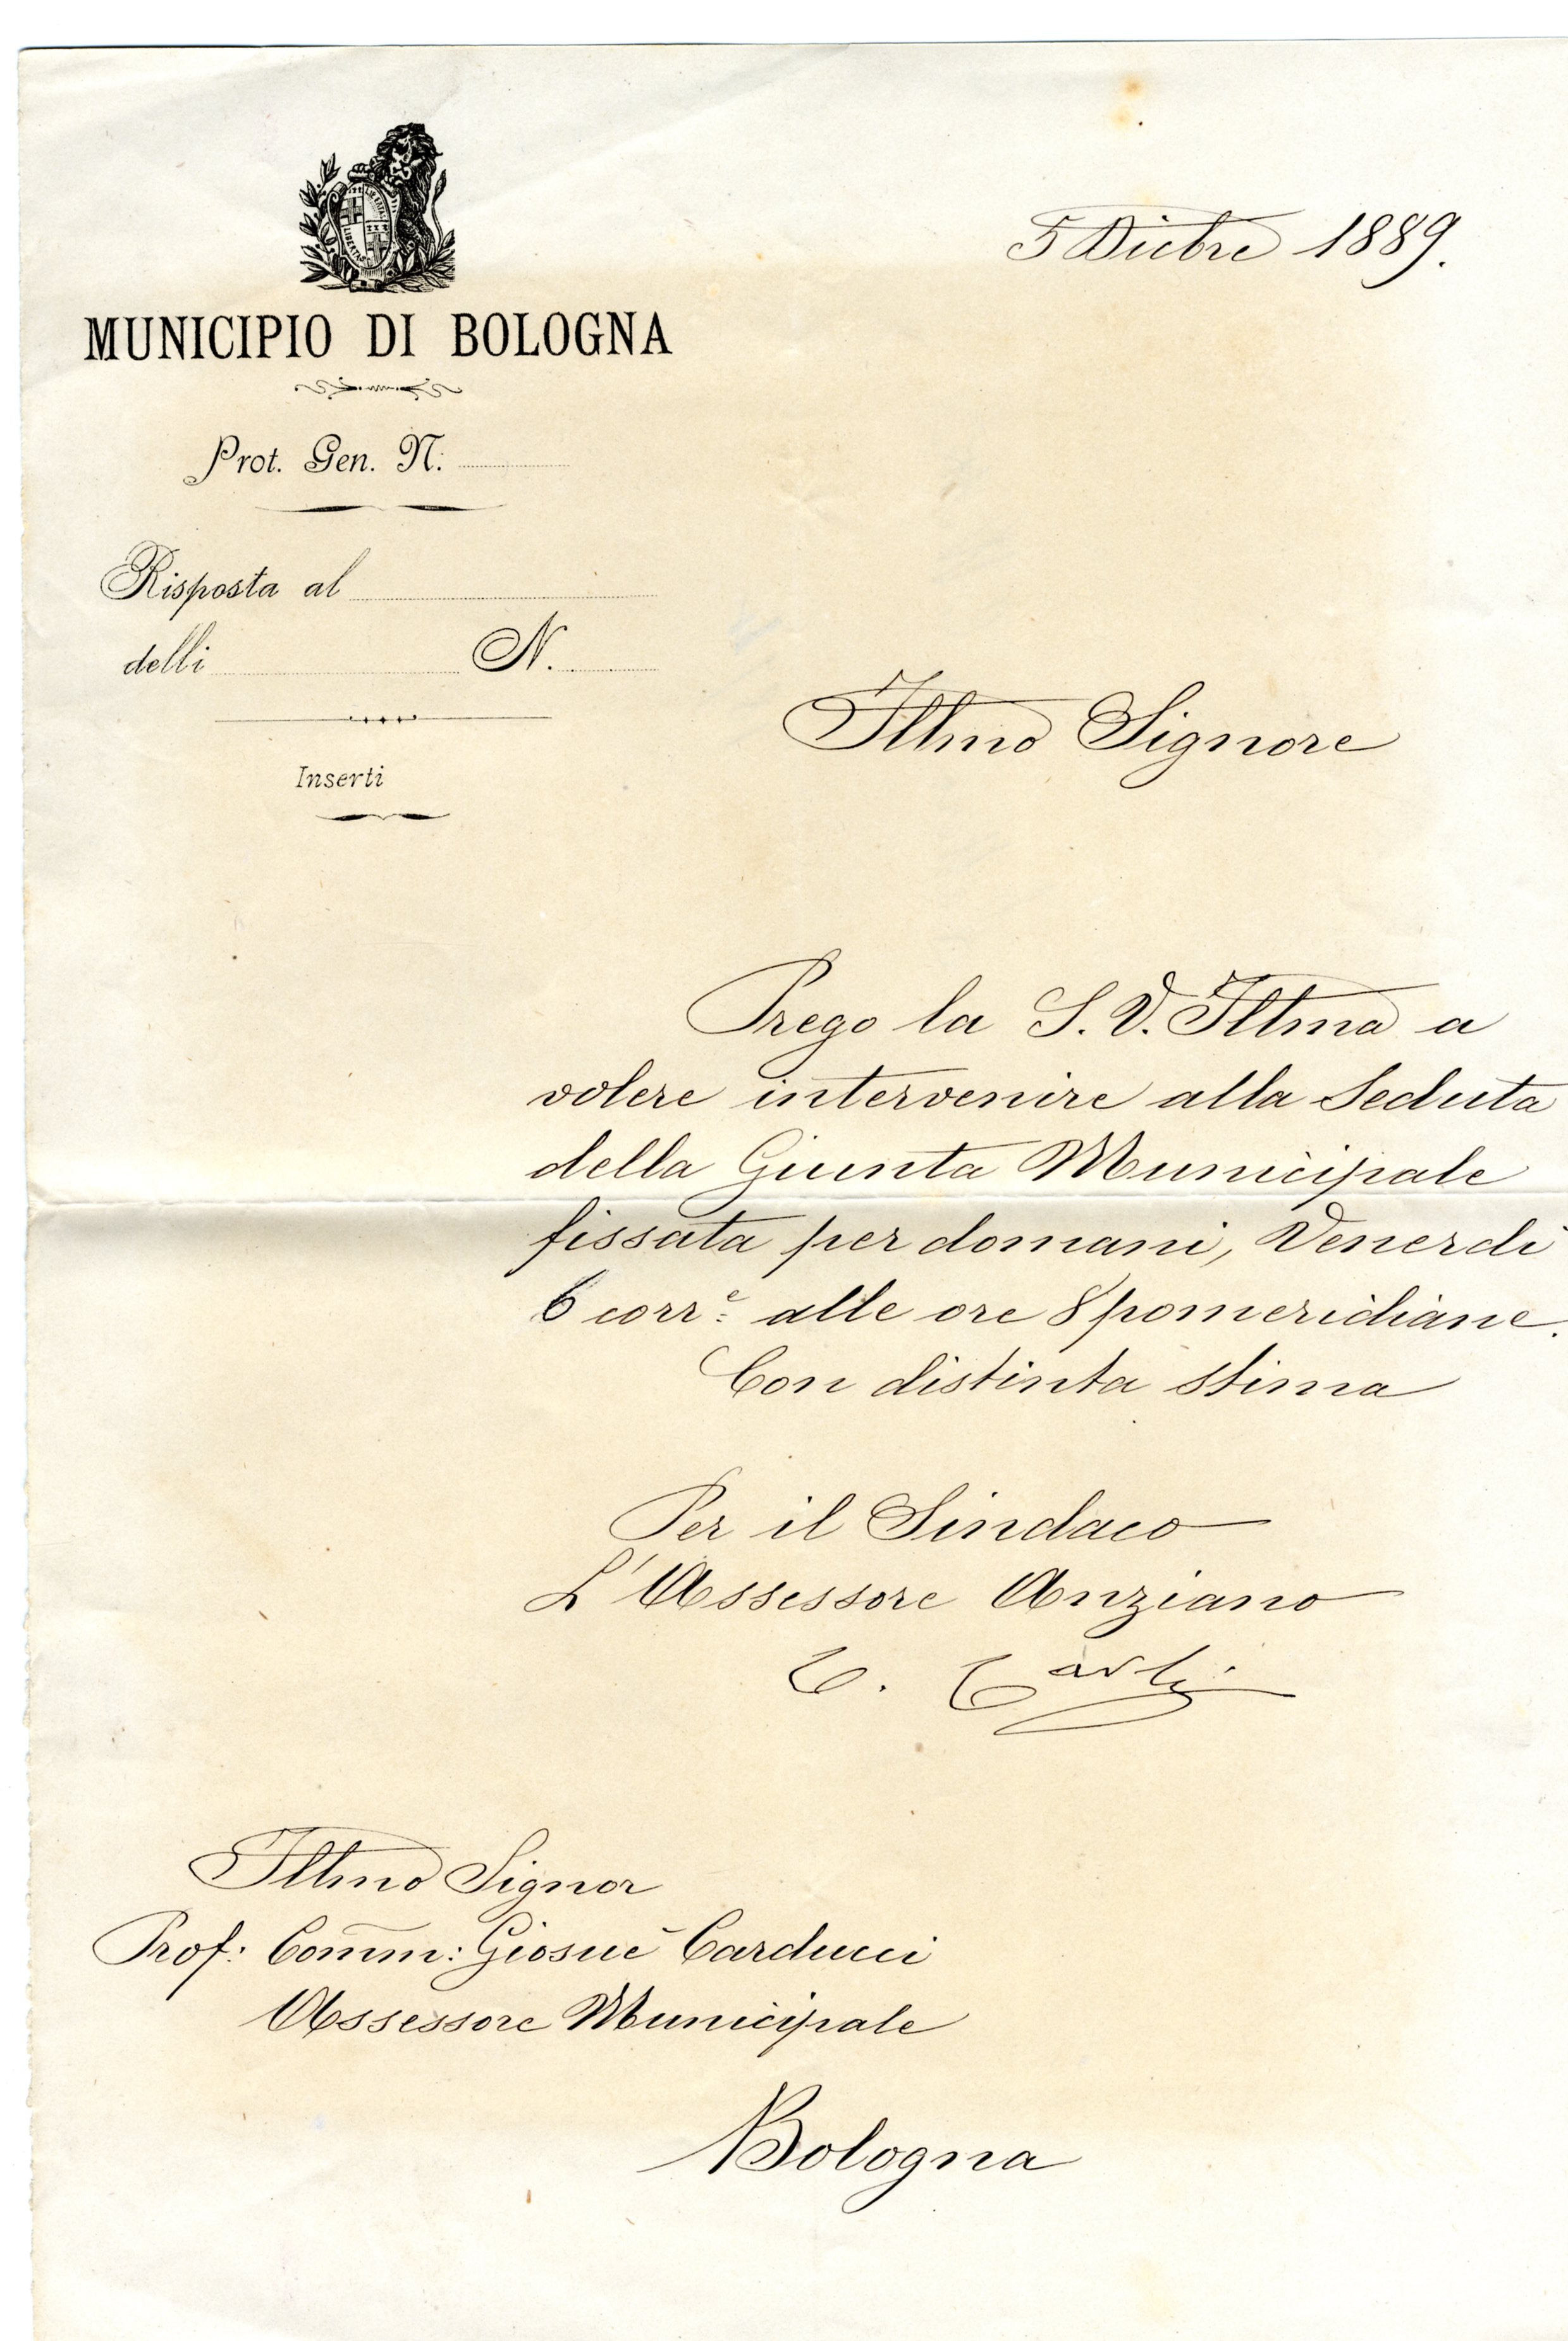 MUNICIPIO DI BOLOGNA
Prot. Gen. N.
Risposta al
delli N.
Inserti
5 Dicbre 1889.
Illmo Signore
Prego la S. V. Illma a
volere intervenire alla Seduta
della Giunta Municipale
fissata per domani, Venerdì
6 corr.e alle ore 8 pomeridiane.
Con distinta stima
Per il Sindaco
L'Assessore Anziano
C. Carli
Illmo Signor
Prof: Comm: Giosuè Carducci
Assessore Municipale
Bologna